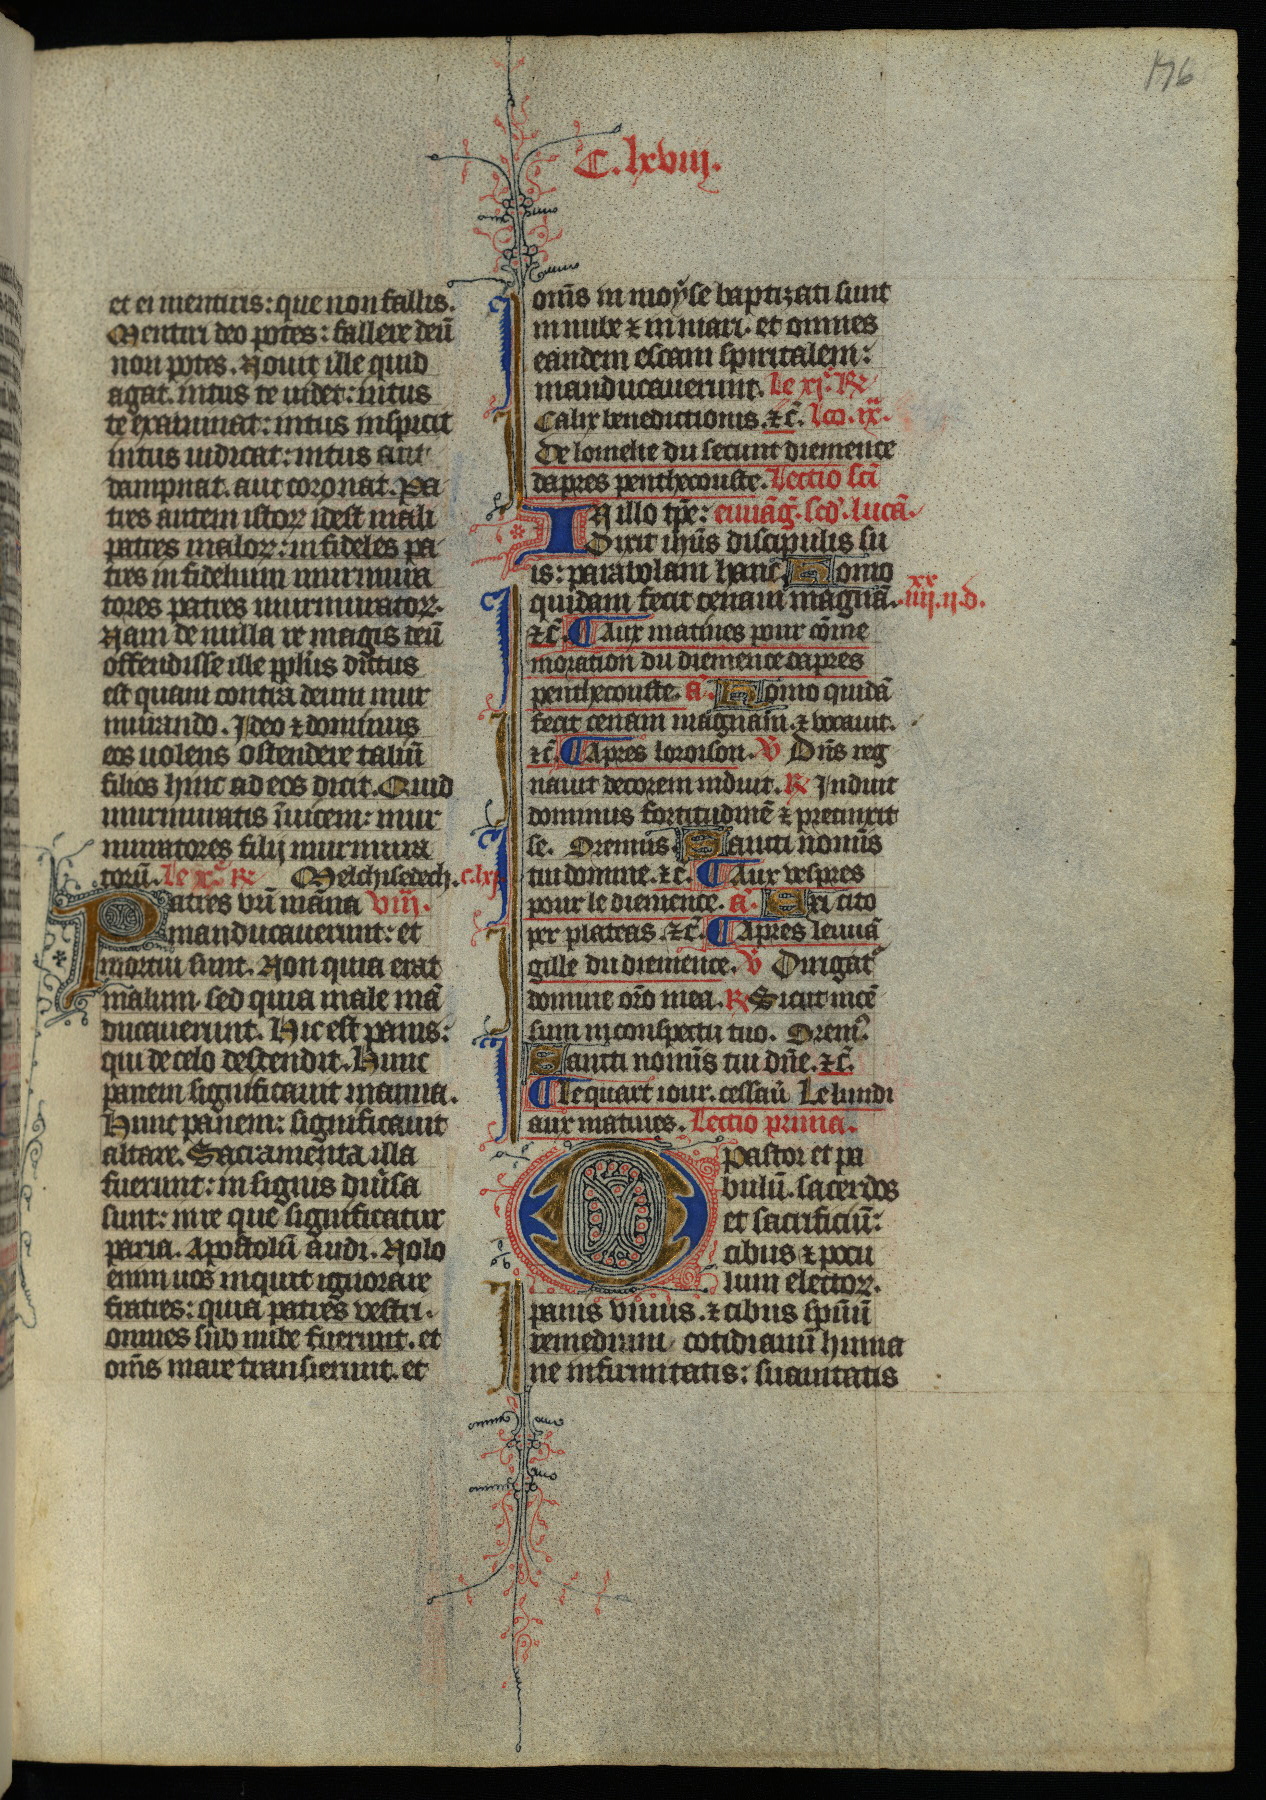 176
C. lxviij.
et ei mentiris: que non fallis.
Mentiri deo potes: fallere deũ
non potes. Nouit ille quid
agat. intus te uidet: intus
te examinat: intus inspicit
intus iudicat: intus aut
dampnat. aut coronat. Pa
tres autem istoꝝ idest mali
patres maloꝝ: infideles pa
tres infidelium murmura
tores patres murmuratoꝝ.
Nam de nulla re magis deũ
offendisse ille pplũs dictus
est quam contra deum mur
murando. Ideo ⁊ dominus
eos uolens ostendere taliũ
filios hinc ad eos dicit. Quid
murmuratis ĩuicem: mur
muratores filij murmura
torũ. Le xe. ℟ Melchisedech. c. lxj
Patres vr̃i manna viij.
manducauerunt: et
mortui sunt. Non quia erat
malum. sed quia male mã
ducauerunt. Hic est panis:
qui de celo descendit. Hunc
panem significauit manna.
Hunc panem: significauit
altare. Sacramenta illa
fuerunt: in signis diũsa
sunt: in re que significatur
paria. Apostolũ audi. Nolo
enim uos inquit ignorare
fratres: quia patres vestri.
omnes sub nube fuerunt. et
om̃s mare transierunt. et
om̃s in moyse baptizati sunt
in nube ⁊ in mari. et omnes
eandem escam spiritalem:
manducauerunt. Le xje. ℟
Calix benedictionis. ⁊c̃. Lco. ix.
De lomelie du secunt diemence
dapres penthecouste. Lectio sc̃i
In illo tp̃e: euuãg̃. scd̃. lucã.
Dixit ihũs discipulis su
is: parabolam hanc. Homo
quidam fecit cenam magnã. iiij.xx ij. d.
⁊c̃. Aux matines pour cõme
moration du diemence dapres
penthecouste. ã. Homo quidã
fecit cenam magnam. ⁊ vocauit.
⁊c̃. Apres loroison. ℣ Dñs reg
nauit decorem induit. ℟ Induit
dominus fortitudinẽ ⁊ precinxit
se. Oremus. Sancti nomĩs
tui domine. ⁊c̃. Aux vespres
pour le diemence. ã. Exi cito
per plateas. ⁊c̃. Apres leuuã
gille du diemence. ℣ Dirigat
domine or̃o mea. ℟ Sicut incẽ
sum in conspectu tuo. Orem?
Sancti nomĩs tui dñe. ⁊c̃.
Le quart iour. cessaũ Le lundi
aux matines. Lectio prima.
O pastor et pa
bulũ. sacerdos
et sacrificiũ:
cibus ⁊ pocu
lum electoꝝ.
panis viuus. ⁊ cibus sp̃uũ
remedium cotidianũ huma
ne infirmitatis: suauitatis